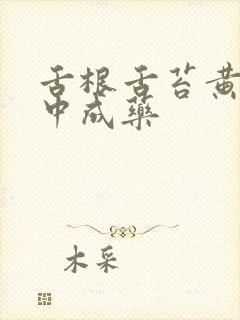 舌根舌苔黄
中成药
木采